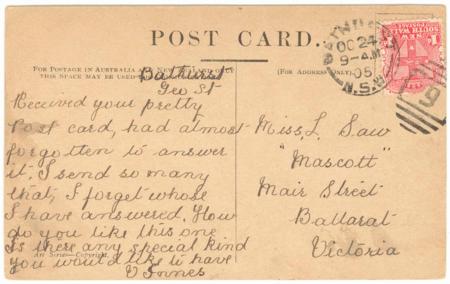 POST CARD..
FOR POSTAGE IN AUSTRALIA AND NEW ZEALAND ONLY
THIS SPACE MAY BE USED
(FOR ADDRESS ONLY)
Bathurst
Geo St
Received your pretty
Post card, had almost
forgotten to answer
it. I send so many
that, I forget whose
I have answered. How
do you like this one
Is there any special kind
you would like to have
V Innes
Art Series—Copyright
Miss L Saw
"Mascott"
Mair Street
Ballarat
Victoria
OC 24
9-AM
05
N.S.W
NEW
SOUTH WALES